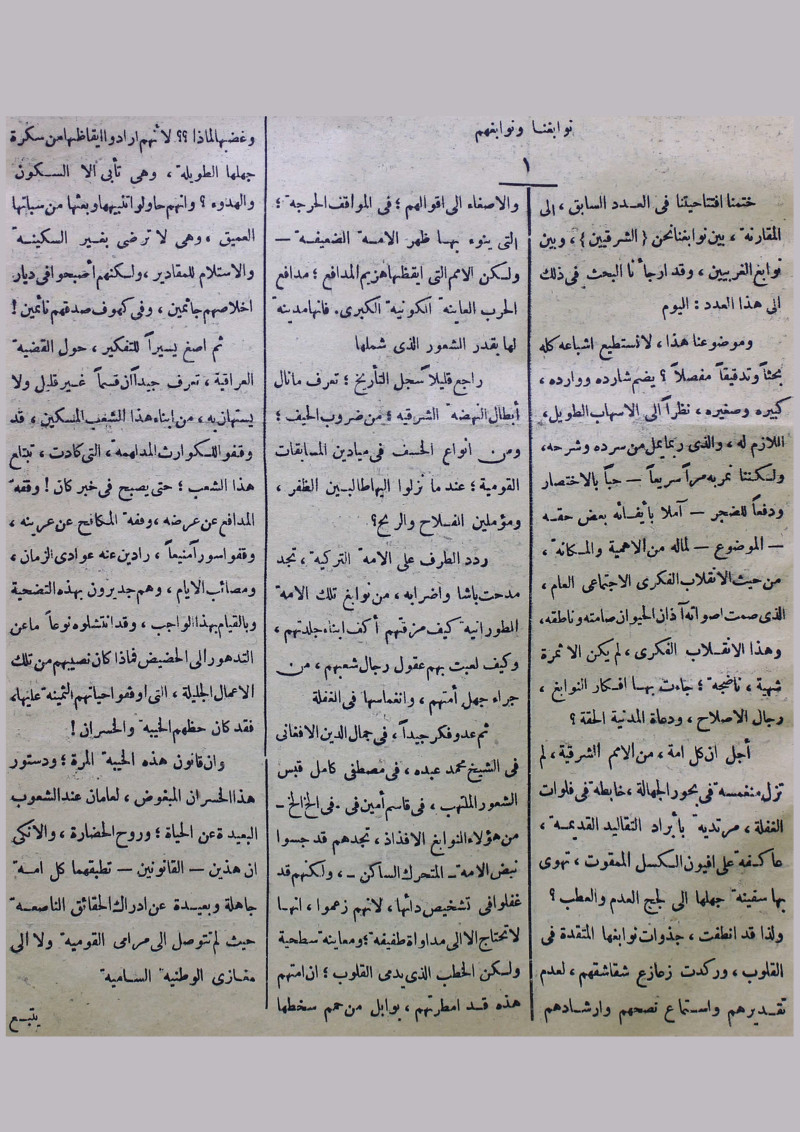 نوابغنا ونوابغهم
١
ختمنا افتتاحيتنا فى العـدد السابق ، الى
المقارنة ، بين نوابغنا نحن { الشرقيين } ، وبين
نوابغ الغربيين ، وقد ارجأنا البحث فى ذلك
الى هذا العدد : اليوم
وموضوعنا هذا ، لانستطيع اشباعه كله
بحثاً وتدقيقاً مفصلاً ؟ يضم شارده ووارده ،
كبيره وصغيره ، نظراً الى الاسهاب الطويل ،
اللازم له ، والذى ربما يمل من سرده وشرحه ،
ولكننا نمر به مراً سريعاً — حباً بالاختصار
ودفعاً للضجر — آملا بأيفائه بعض حقـه
— الموضوع — لماله من الاهمية والمكانة ،
من حيث الانقلاب الفكرى الاجتماعى العام ،
الذى صمت اصواته آذان الحيوان صامته وناطقه ،
وهذا الانقـلاب الفكرى ، لم يكن الا ثمرة
شهية ، ناضجة ؛ جاءت بهـا افـكار النوابغ ،
رجال الاصلاح ، ودعاة المدنية الحقة ؟
أجل ان كل امة ، من الامم الشرقية ، لم
تزل منغمسة فى بحور الجهالة ، خابطة فى فلوات
الغفلة ، مرتدية بأبراد التقاليد القديمـة ،
عاكـفة على افيون الـكسل الممقوت ، تهوى
بها سفينة جهلها الى لجج العدم والعطب ؟
ولذا قد انطفت ، جذوات نوابغها المتقدة فى
القلوب ، وركدت زعازع شقاشقهم ، لعدم
تقـديرهم واستمـاع نصحهم وارشـادهم
والاصغاء الى اقوالهم ؛ فى المواقف الحرجة ؛
التى ينوء بهـا ظهر الامـة الضعيفـة —
ولـكن الامم التى ايقظها هزيم المدافع ؛ مدافع
الحرب العاينة الكونية الكبرى . فانها مدينة
لها بقدر الشعور الذى شملها
راجع قليلاً سجل التأريخ ؛ تعرف مانال
أبطال النهضة الشرقية ؛ من ضروب الحيف ؛
ومـن انواع الخسف فى ميادين المسابقات
القومية ؛ عند ما نزلوا اليها طالبـين الظفر ،
ومؤملين الفـلاح والربح ؟
ردد الطرف على الامة التركية ، تجد
مدحت باشا واضرابه ، من نوابغ تلك الامة
الطورانية كيف مزقتهم أكف ابناء جلدتهم ،
وكيف لعبت بهم عقول رجال شعبهم ، مـن
جراء جهل أمتهم ، وانغماسها فى الغفلة
ثم عدو فكر جيداً ، فى جمال الدين الافغانى
فى الشيخ محمد عبده ، فى مصطفى كامل قبس
الشعور الملتهب ، فى قاسم أمين فى . فى الخ الخ ـ
من هؤلاء النوابغ الافذاذ ، تجدهم قد جسوا
نبض الامة ـ المتحرك الساكن ـ ، ولكنهم قد
غفلوا فى تشخيص دائها ، لانهم زعموا ، انهـا
لا تحتاج الا الى مداواة طفيفة ؛ ومعاينة سطحية
ولـكن الخطب الذى يدمى القلوب ؛ ان امتهم
هذه قـد امطرتهم ، بوابل من حمم سخطها
وغضبها لماذا ؟؟ لأنهم ارادوا ايقاظها من سكرة
جهلها الطويلة ، وهى تأبى الا السـكون
والهدوء ؟ وانهم حاولوا تنبيهها وبعثها من سباتها
العميق ، وهى لا ترضى بغـير السكينـة
والاستلام للمقادير ، ولـكنهم أصبحوا فى ديار
اخلاصهم جاثمين ، وفى كهوف صدقهم نائمين !
ثم اصغ يسيراً للتفكير ، حول القضية
العراقية ، تعرف جيداً ان قسماً غـير قليل ولا
يستهان به ، من ابناء هذا الشعب المسكين ، قد
وقفوا للـكوارث المدلهمة ، التى كادت ، تبتاع
هذا الشعب ؛ حتى يصبح فى خبر كان ! وقفة
المدافع عن عرضه ، وقفة المكافح عن عرينه ،
وقفوا سوراً منيعاً ، رادين عنه عوادى الزمان ،
ومصائب الايام ، وهم جديرون بهذه التضحية
وبالقيام بهذا الواجب ، وقد انتشلوه نوعاً ما عن
التدهور الى الحضيض فماذا كان نصيبهم من تلك
الاعمال الجليلة ، التى اوقفوا حياتهم الثمينة عليها ،
فقد كان حظهم الخيبة والخسران !
وان قانون هذه الخيبة المرة ؛ ودستور
هذا الخسران المبغوض ، لعامان عند الشعوب
البعيدة عن الحياة ؛ وروح الحضارة ، والانكى
ان هذين — القانونين — تطبقهما كل امـة
جاهلة وبعيـدة عن ادراك الحقائق الناصعـة
حيث لم تتوصل الى مرامى القومية ولا الى
مغـازى الوطنية السـامية
يتبـع